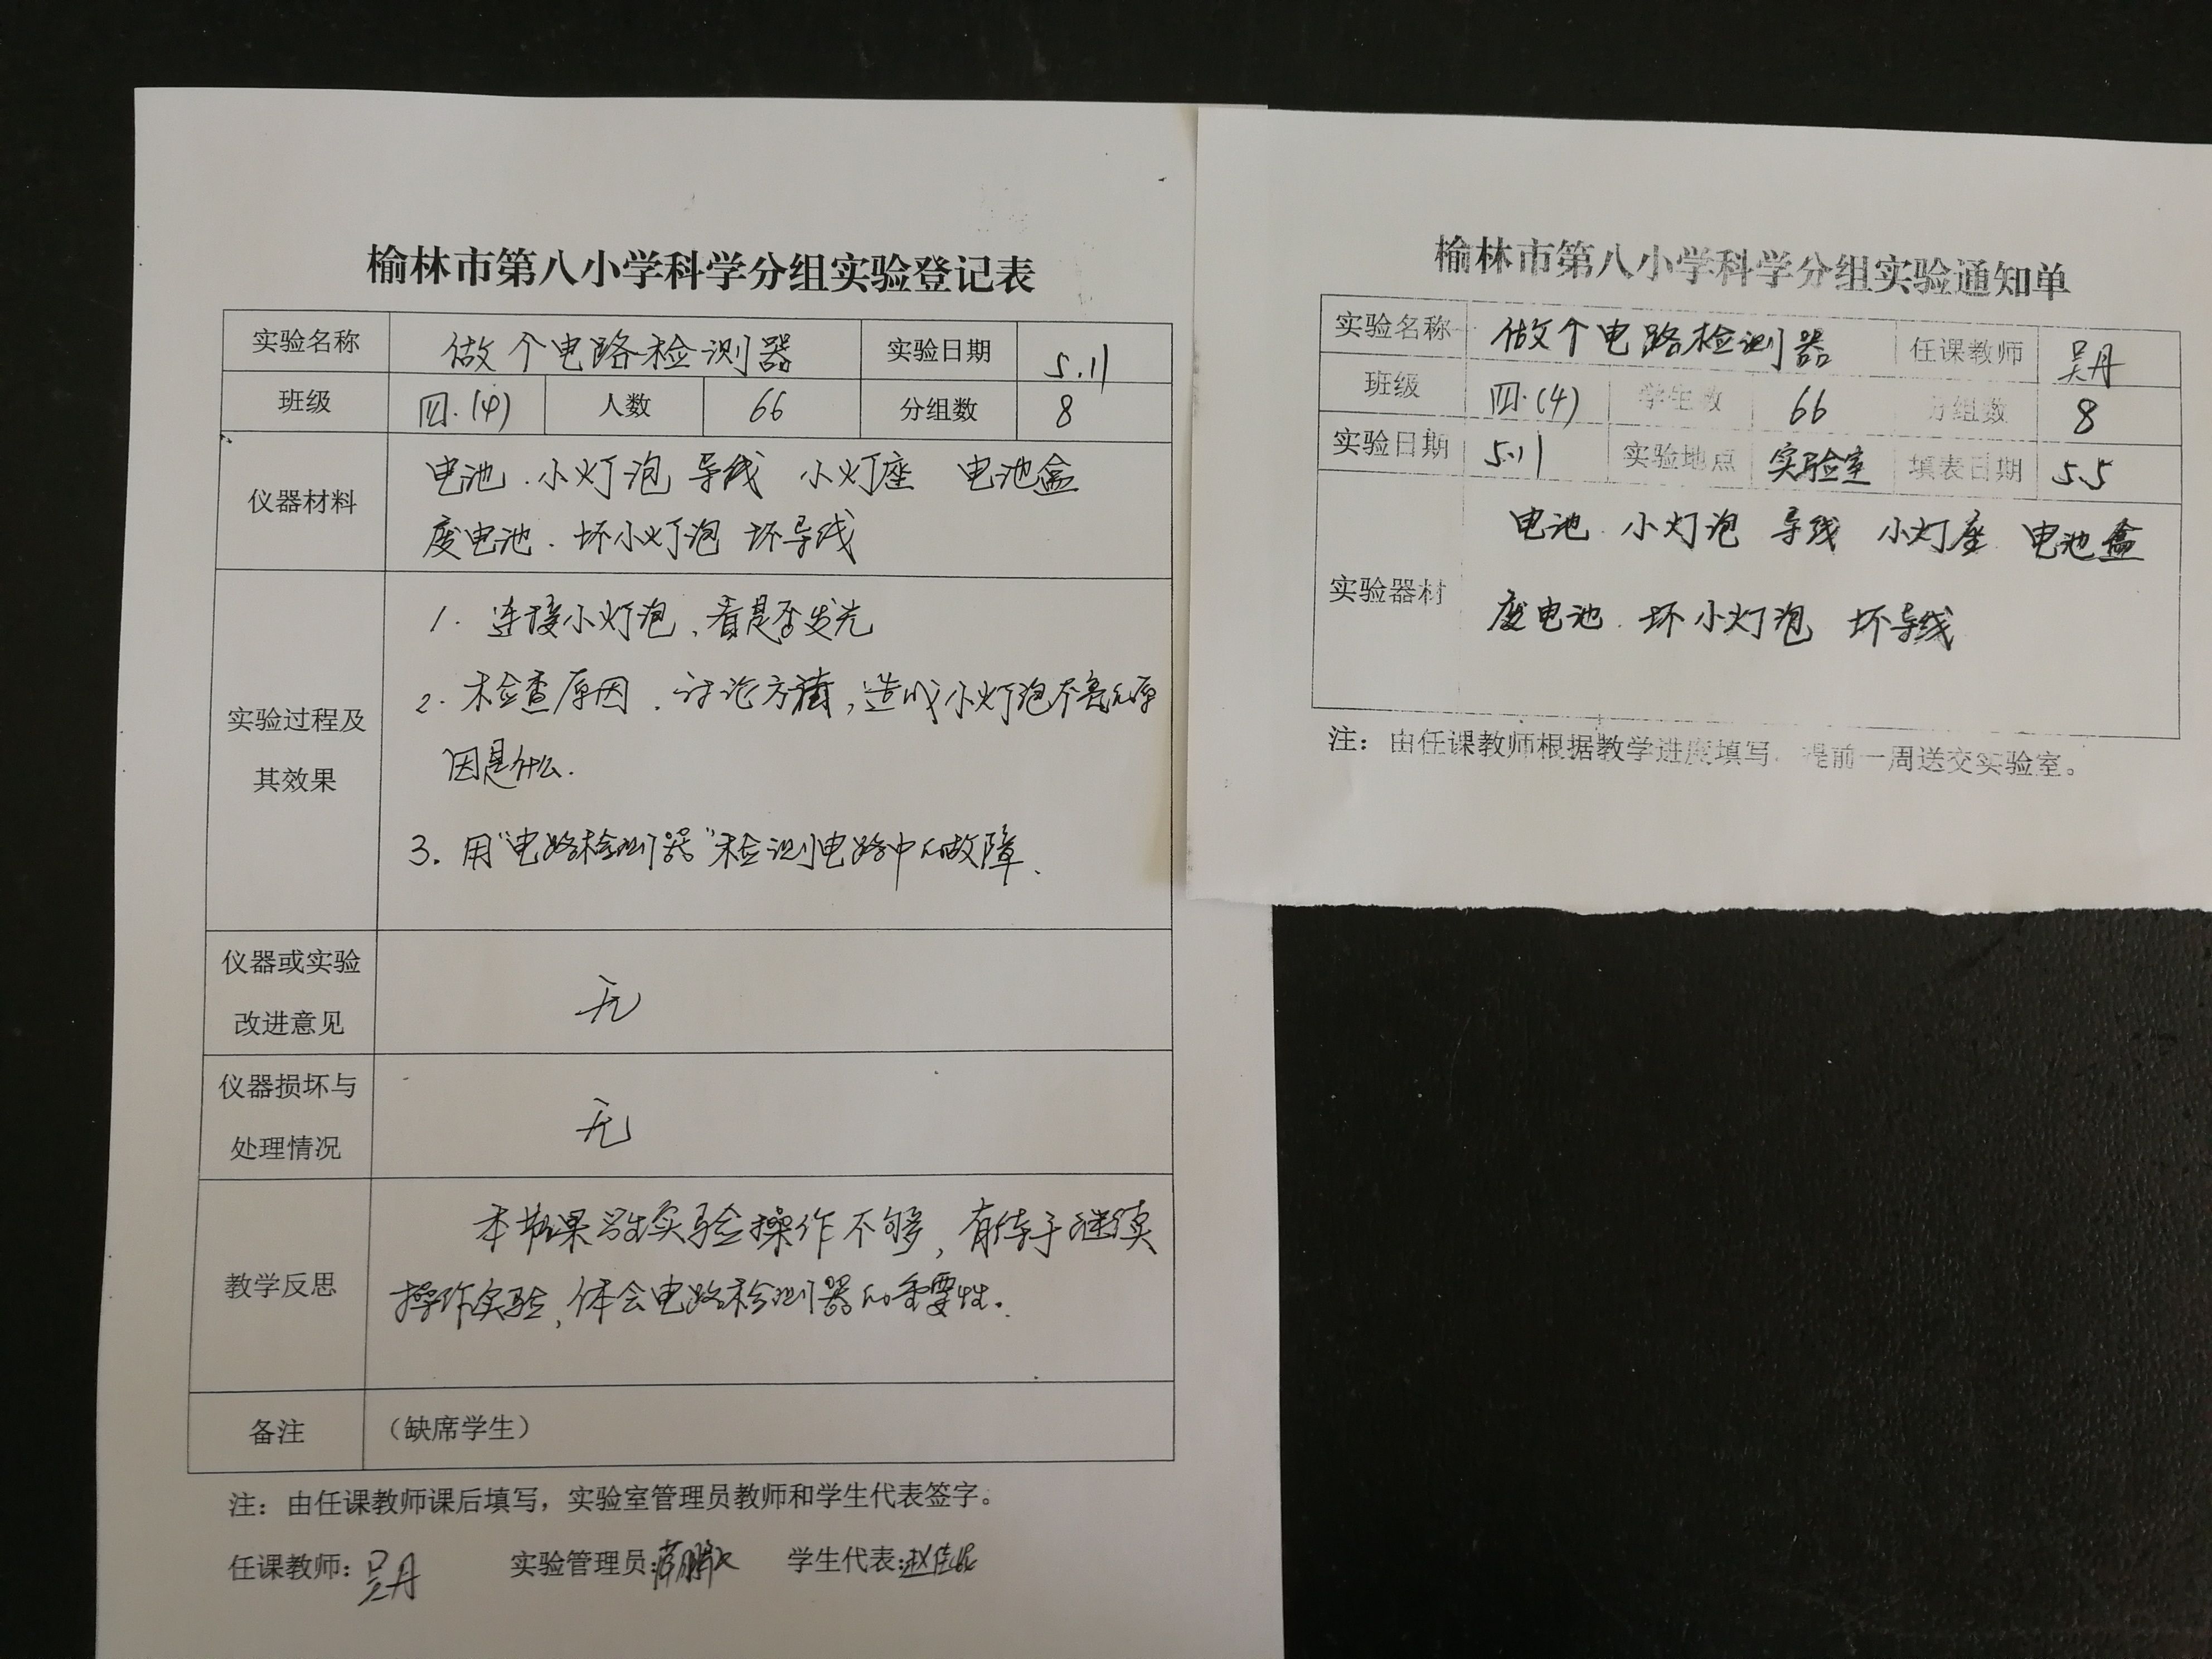 榆林市第八小学科学分组实验登记表
实验名称 做个电路检测器 实验日期 5.11
班级 四.(4) 人数 66 分组数 8
仪器材料
电池.小灯泡 导线 小灯座 电池盒
废电池.坏小灯泡 坏导线
实验过程及
其效果
1. 连接小灯泡,看是否发光
2. 检查原因.讨论方法,造成小灯泡不亮的原
因是什么.
3. 用“电路检测器”检测电路中的故障.
仪器或实验
改进意见
无
仪器损坏与
处理情况
无
教学反思
本节课学生实验操作不够,有待于继续
操作实验,体会电路检测器的重要性.
备注 (缺席学生)
注:由任课教师课后填写,实验室管理员教师和学生代表签字。
任课教师:吴丹 实验管理员: 学生代表:
榆林市第八小学科学分组实验通知单
实验名称 做个电路检测器 任课教师 吴丹
班级 四.(4) 学生数 66 分组数 8
实验日期 5.11 实验地点 实验室 填表日期 5.5
实验器材
电池.小灯泡 导线 小灯座 电池盒
废电池.坏小灯泡 坏导线
注:由任课教师根据教学进度填写,提前一周送交实验室。